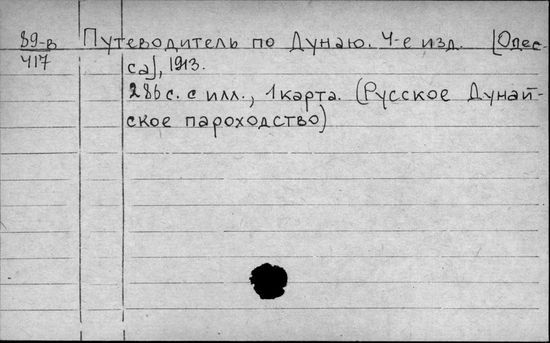 89-в Путеводитель по Дунаю. 4-е изд. [Одес-
417 са], 1913.
286 с. с илл., 1 карта. (Русское Дунай-
ское пароходство)